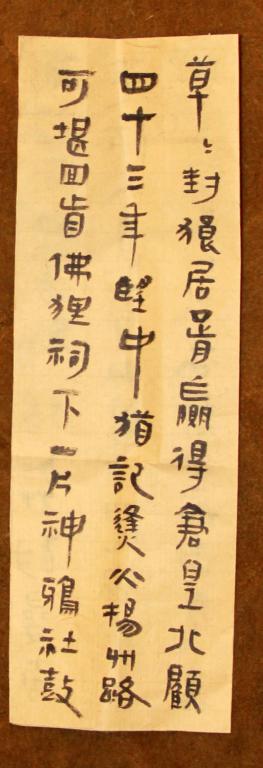 草〻封狼居胥贏得倉皇北顧
四十三年望中猶記烽火揚州路
可堪回首佛狸祠下一片神鴉社鼓